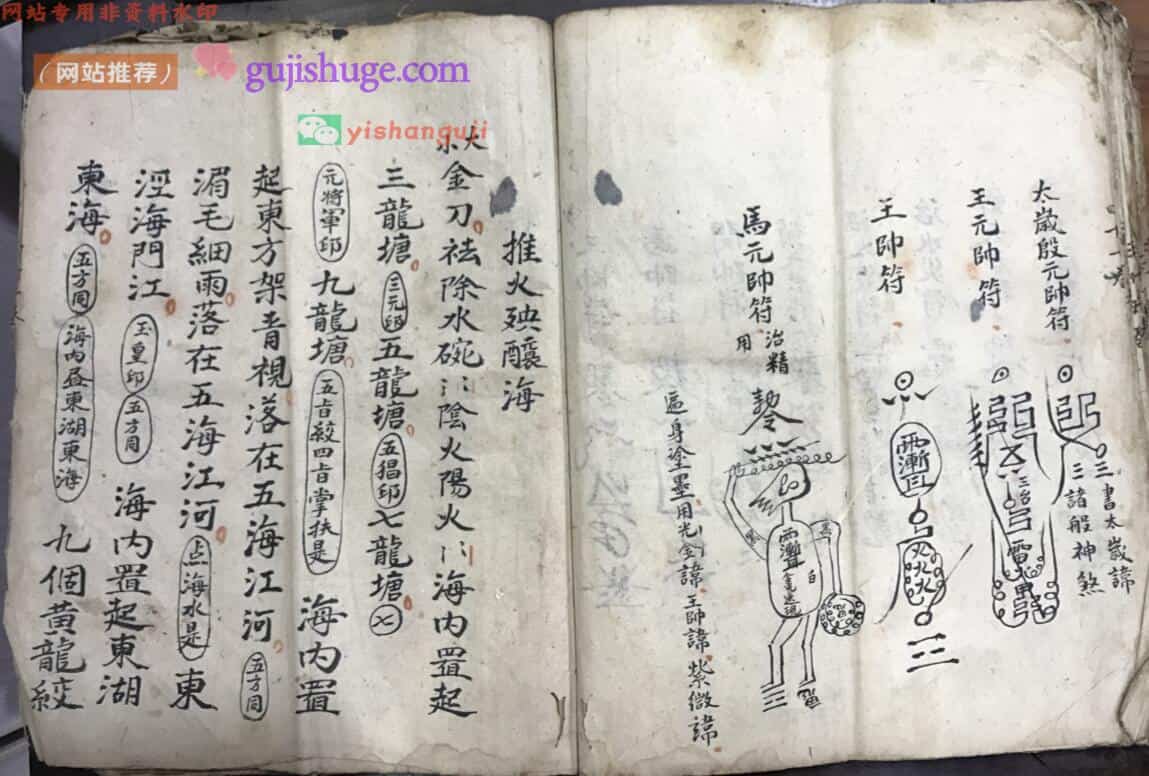 网站专用非资料水印
（网站推荐）
gujishuge.com
yishanguji
太歲殷元帥符
三書太歲諱
三諸般神煞
王元帥符
三台
雷
王帥符
火火
馬元帥符
治精
用
白
遍身塗墨用光金諱王帥諱紫微諱
推火殃釀海
大
金刀祛除水碗〻陰火陽火〻海內置起
三龍塘三元印五龍塘五猖印七龍塘七
元將軍印九龍塘五旨絞四旨掌扶是海內置
起東方架青視落在五海江河五方同
湄毛細雨落在五海江河点海水是東
海門江玉皇印五方同海內置起東湖
東海五方同海內昼東湖東海九個黃龍絞